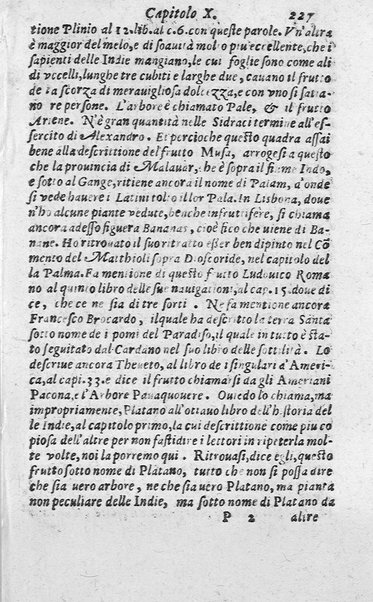 Capitolo X. 227
tione Plinio al 12. lib. al c.6. con queste parole. Vn'altra
è maggior del melo, e di soauità mol o piu eccellente, che i
sapienti delle Indie mangiano, le cui foglie sono come ali
di vccelli, lunghe tre cubiti e larghe due, cauano il frutto
de la scorza di merauigliosa dolcezza, e con vno si satia-
no re persone. L'arbore è chiamato Pale, & il frutto
Ariene. N'è gran quantità nelle Sidraci termine all'es-
sercito di Alexandro. Et percioche questo quadra assai
bene alla descrittione del frutto Musa, arrogesi a questo
che la prouincia di Malauar, che è sopra il fiume Indo,
e sotto al Gange, ritiene ancora il nome di Paiam, d'onde
si vede hauere i Latini tolto il lor Pala. In Lisbona, doue
n'ho alcune piante vedute, benche infruttifere, si chiama
ancora adesso figuera Bananas, cioè fico che viene di Ba-
nane. Ho ritrouato il suo ritratto esser ben dipinto nel Cō
mento del Matthioli sopra Dioscoride, nel capitolo del
la Palma. Fa mentione di questo frutto Ludouico Roma
no al quinto libro delle sue nauigationi, al cap. 15. doue di
ce, che ce ne sia di tre sorti. Ne fa mentione ancora
Francesco Brocardo, il quale ha descritto la terra Santa
sotto nome de i pomi del Paradiso, il quale in tutto è sta-
to seguitato dal Cardano nel suo libro delle sottilità. Lo
descriue ancora Theueto, al libro de i singulari d'Ameri-
ca, al capi. 33. e dice il frutto chiamasi da gli Ameriani
Pacona, e l'Arbore Paquouere. Ouiedo lo chiama, ma
impropriamente, Platano all'ottauo libro dell'h storia del
le Indie, al capitolo primo, la cui descrittione come piu co
piosa dell'altre per non fastidire i lettori in ripeterla mol-
te volte, noi la porremo qui. Ritrouasi, dice egli, questo
frutto sotto nome di Platano, tutto che non si possa dire
che sia uero arbore, ne che sia uero Platano, ma pianta
non peculiare delle Indie, ma sotto nome di Platano da
P 2 altre